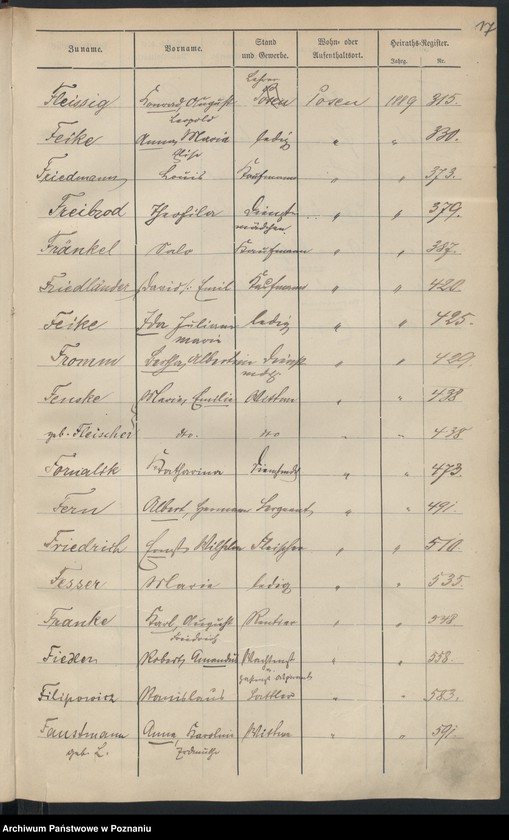 17
Zuname. Vorname. Stand und Gewerbe. Wohn- oder Aufenthaltsort. Heiraths-Register.
Jahrg. Nr.
Lehrer
Fleissig Konrad, August Posen Posen 1889 315.
Leopold
Feike Anna, Maria ledig " " 330.
Elise
Friedmann Louis Kaufmann " " 373.
Freibrod Theofila Dienst- " " 379.
mädchen
Fränkel Salo Kaufmann " " 387.
Friedländer David, Emil Kaufmann " " 420.
Feike Ida Juliane ledig " " 425.
Marie
Fromm Bertha, Albertine Dienst- " " 429.
mdch
Fenske Maria, Emilie Wittwe " " 438
geb. Fleischer dto. dto " " 438
Katharina Dienstmdch " " 473
Fern Albert, Hermann Sergeant " " 491.
Friedrich Ernst, Wilhelm Fleischer " " 510.
Fesser Marie ledig " " 535.
Franke Karl, August Rentier " " 548
Friedrich
Fiedler Robert, Amandus " " 558.
Filipowicz Stanislaus Sattler " " 583.
Faustmann Anna, Karoline Wittwe " " 591.
geb. L. Erdmuthe
Archiwum Państwowe w Poznaniu